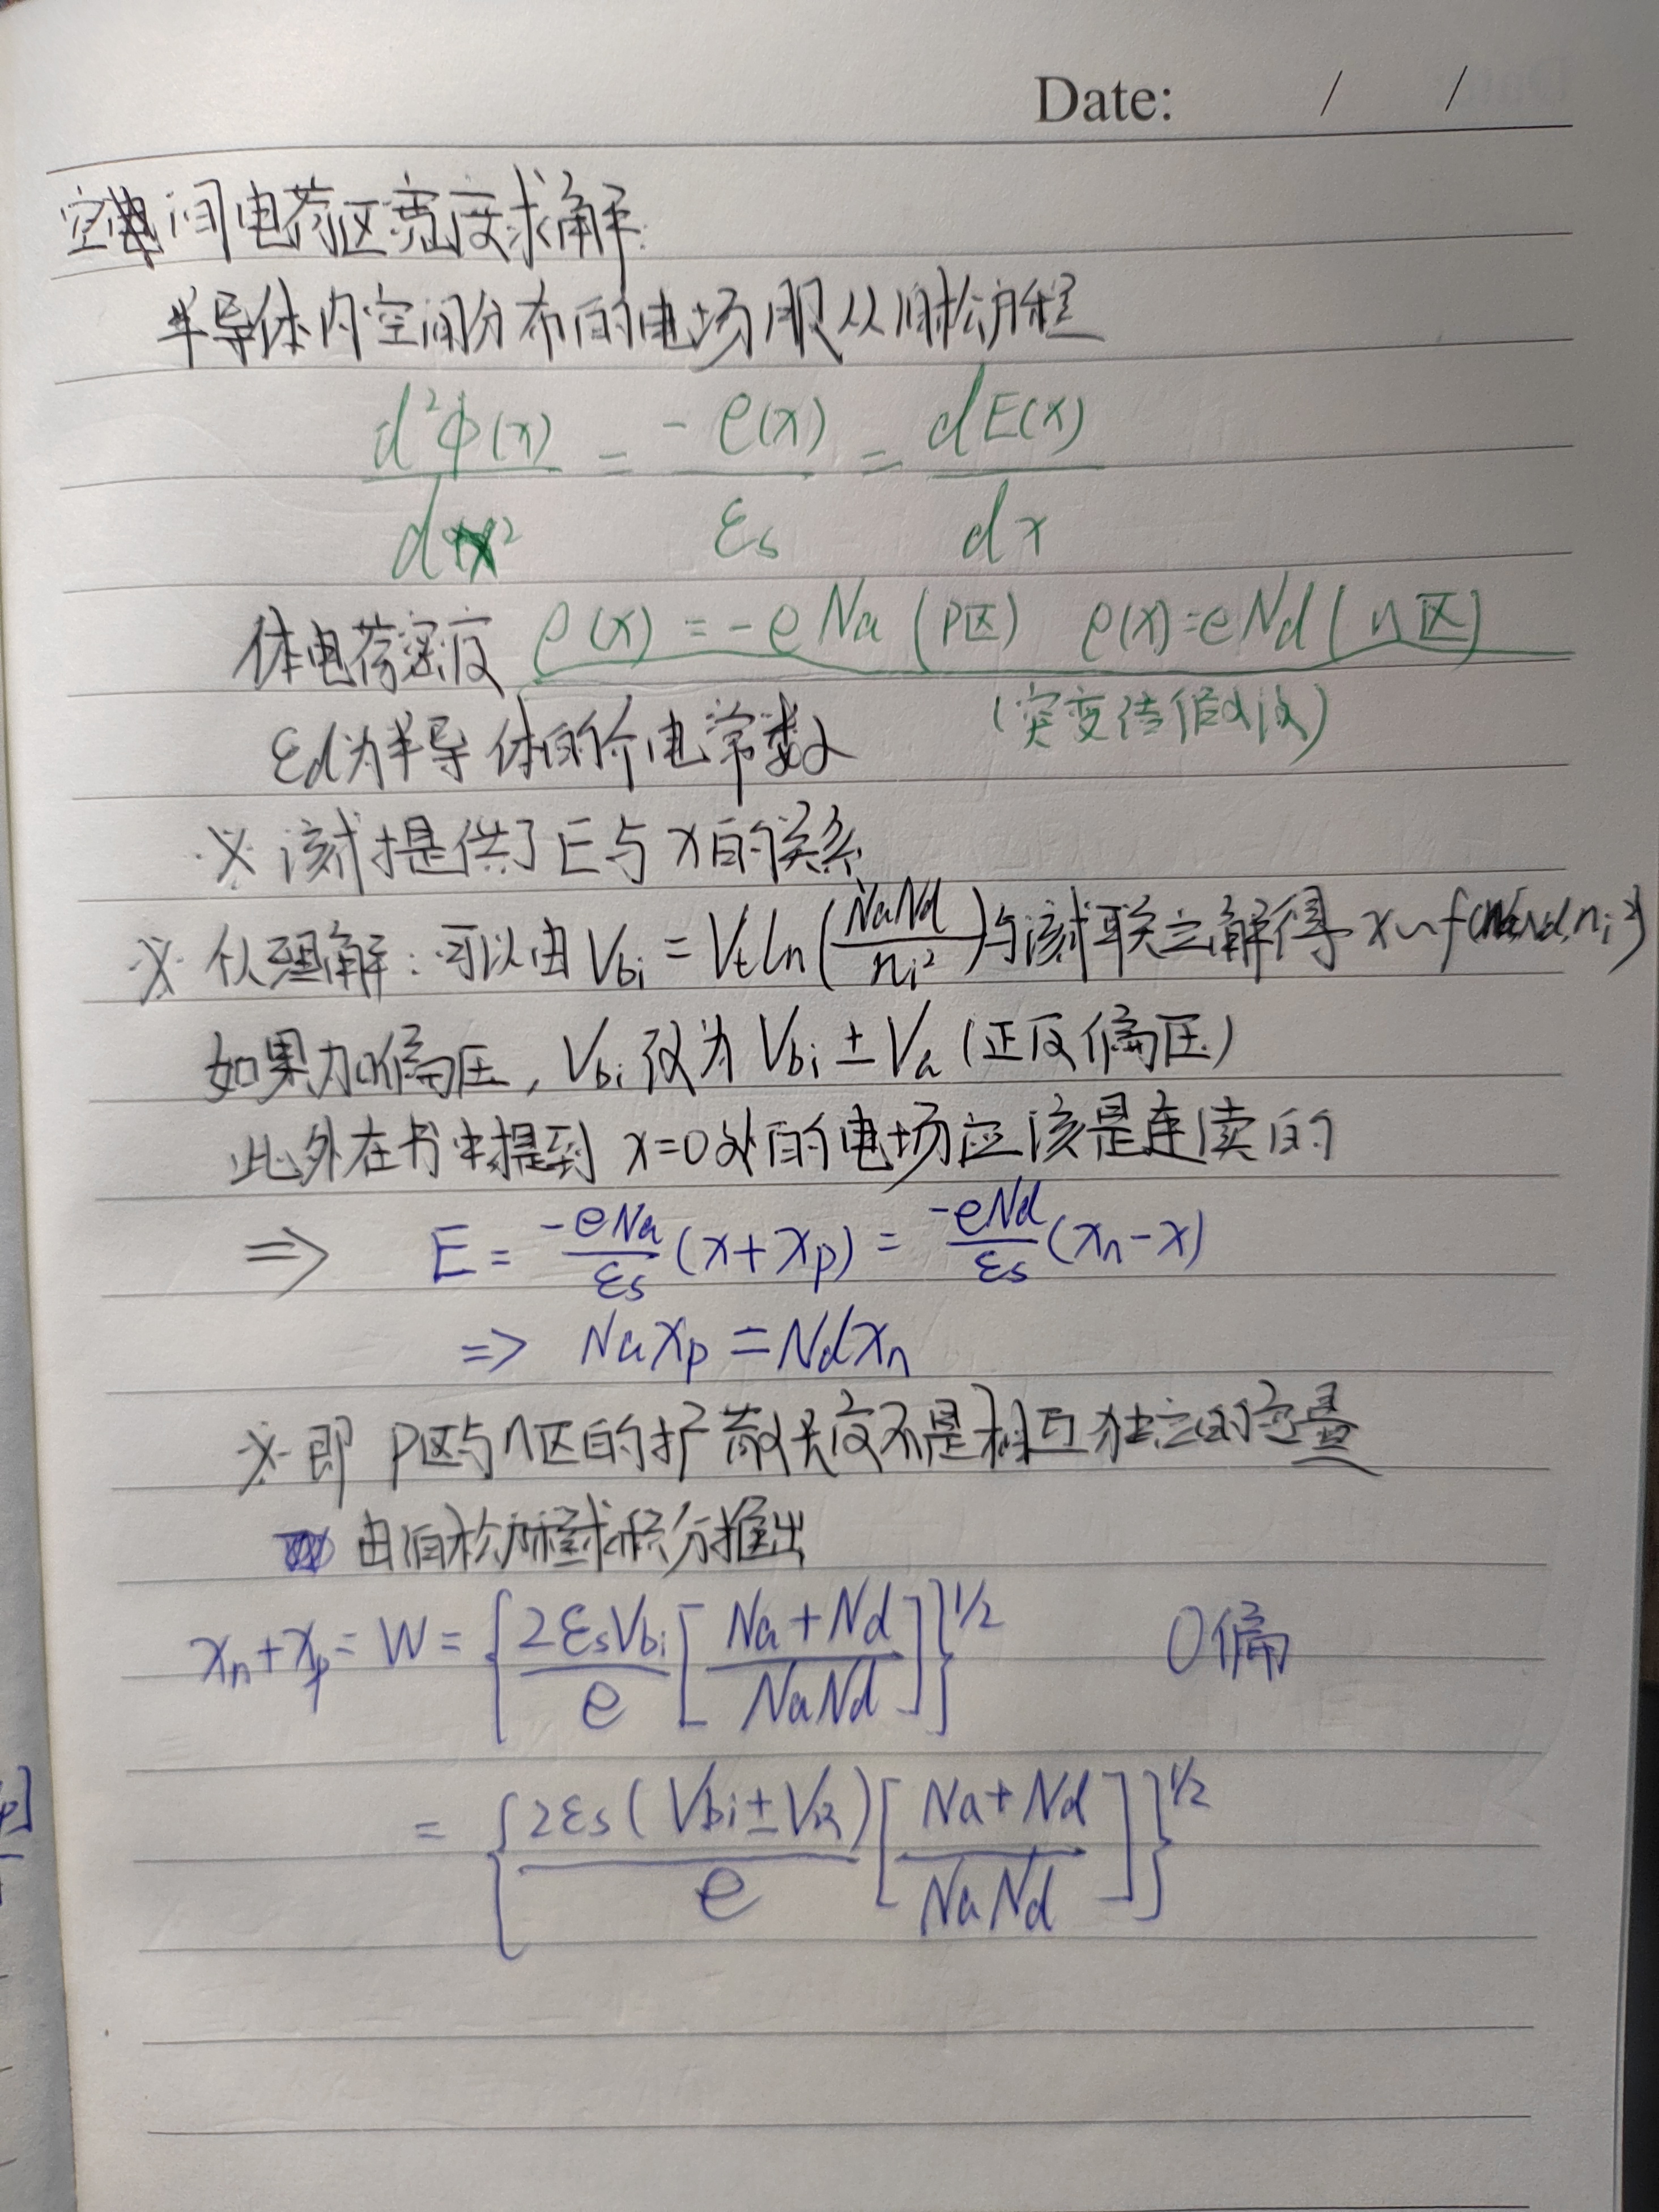 Date: / /
空间电荷区宽度求解:
半导体内空间分布的电场服从泊松方程
d²φ(x)/dx² = -ρ(x)/εs = dE(x)/dx
体电荷密度 ρ(x)=-eNa(P区) ρ(x)=eNd(n区)
(突变结假设)
εd为半导体的介电常数
※ 该式提供了E与x的关系
※ 仅理解:可以由Vbi=Vt ln(NaNd/ni²)与该式联立解得x~f(Na,Nd,ni²)
如果加偏压,Vbi改为Vbi±Va(正反偏压)
此外在书中提到x=0处的电场应该是连续的
⇒ E=-eNa/εs(x+xp)=-eNd/εs(xn-x)
⇒ Naxp=Ndxn
※ 即P区与n区的扩散长度不是相互独立的变量
由泊松方程求积分推出
xn+xp=W={2εsVbi/e[Na+Nd/NaNd]}^1/2 0偏
={2εs(Vbi±VR)/e[Na+Nd/NaNd]}^1/2